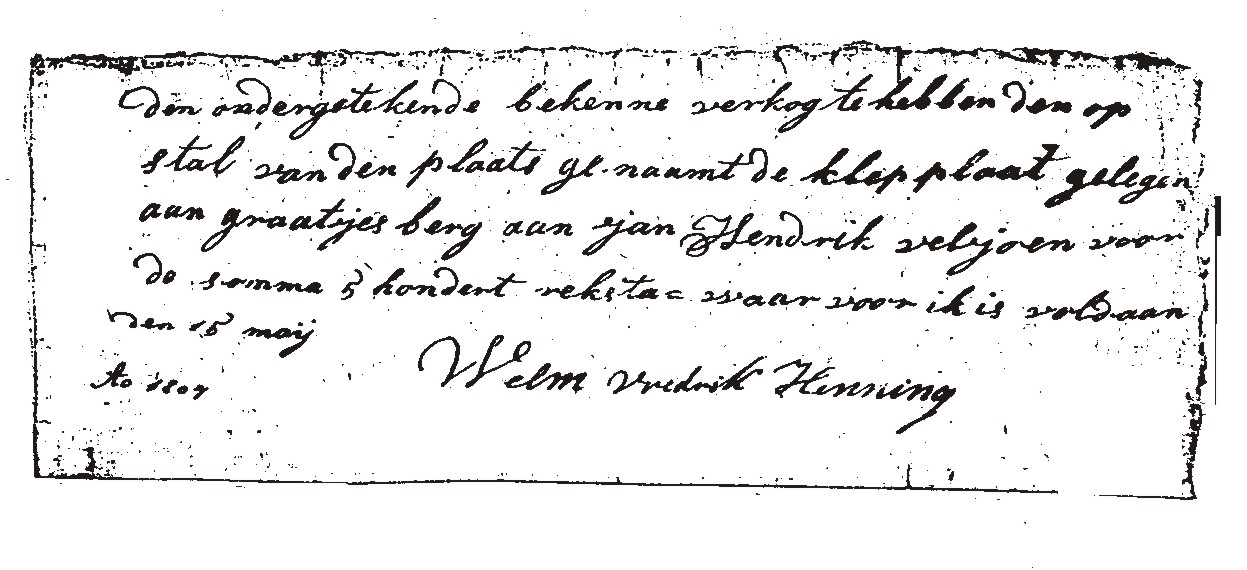 den ondergetekende bekenne verkog te hebben den op
stal van den plaats ge naamt de klepplaat gelegen
aan graatjes berg aan jan Hendrik velvjoen voor
de somma 5 hondert reksta= waar voor ik is voldaan
den 15 maij
Ao 1807
Welm Vredrik Henning